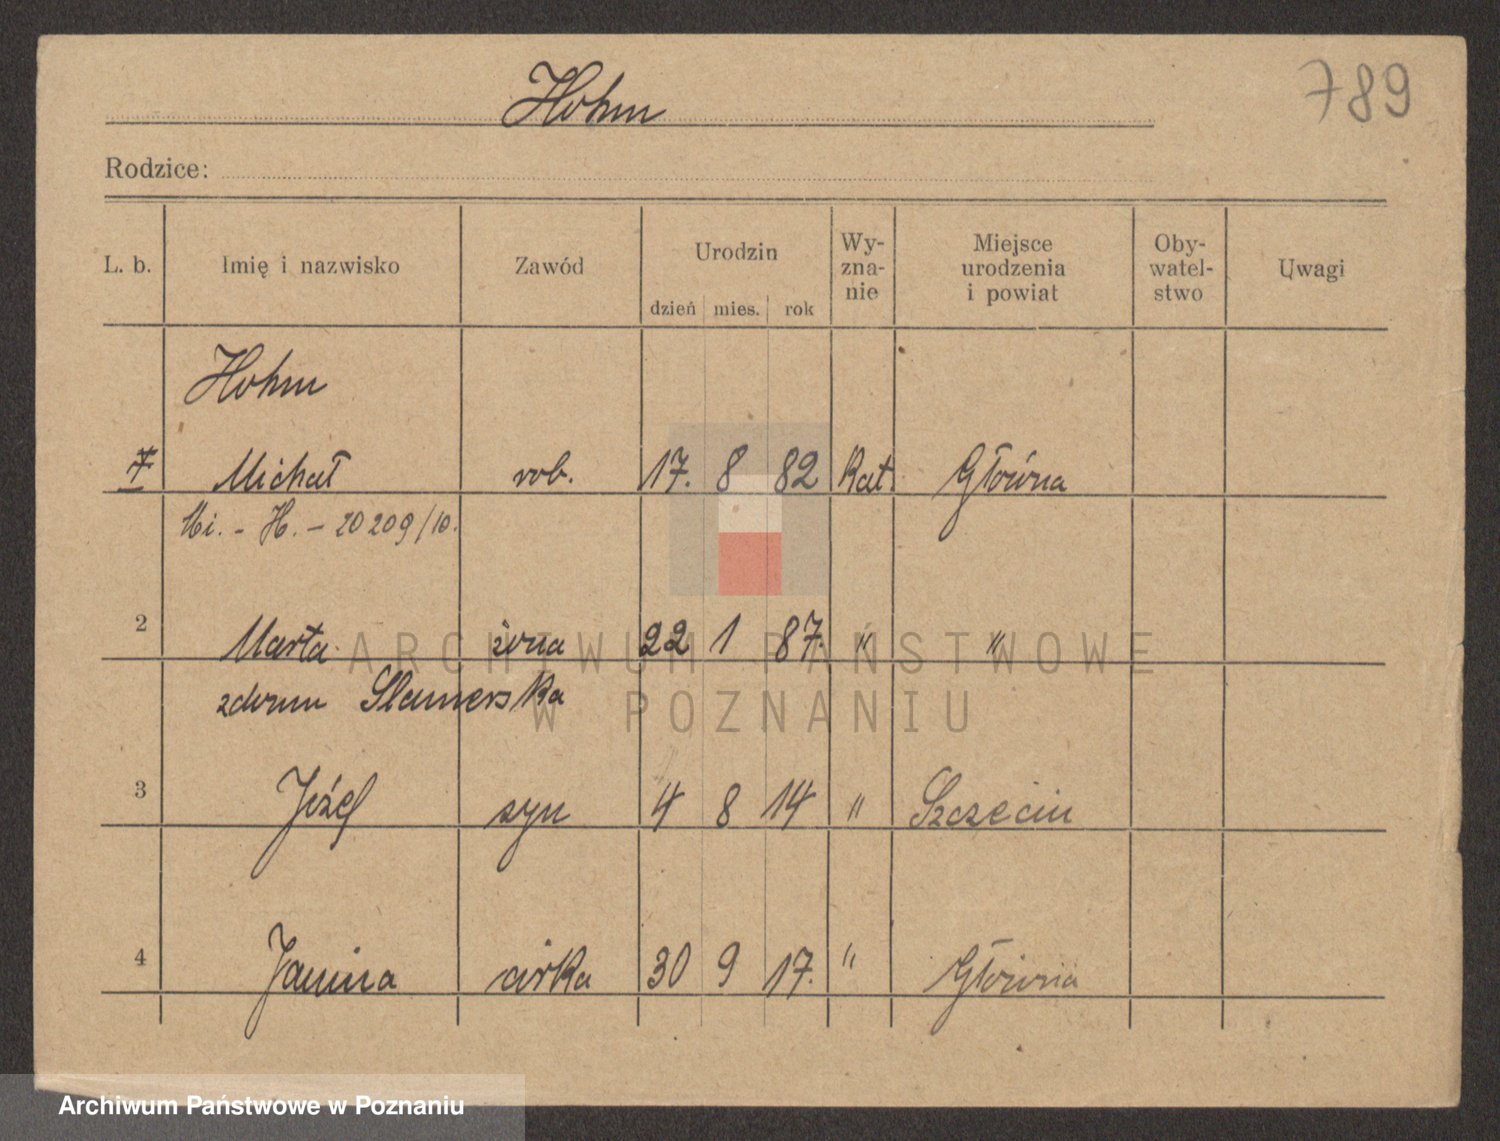 Hohm
789
Rodzice:
L. b. Imię i nazwisko Zawód Urodzin dzień mies. rok Wy-zna-nie Miejsce urodzenia i powiat Oby-watel-stwo Uwagi
Hohm
Michał rob. 17. 8 82 Kat Główna
Mi. - H. - 20209/10.
2 Marta żona 22 1 87. " "
zdomu
3 Józef syn 4 8 14 " Szczecin
4 Janina córka 30 9 17. " Główna
ARCHIWUM PAŃSTWOWE
W POZNANIU
Archiwum Państwowe w Poznaniu